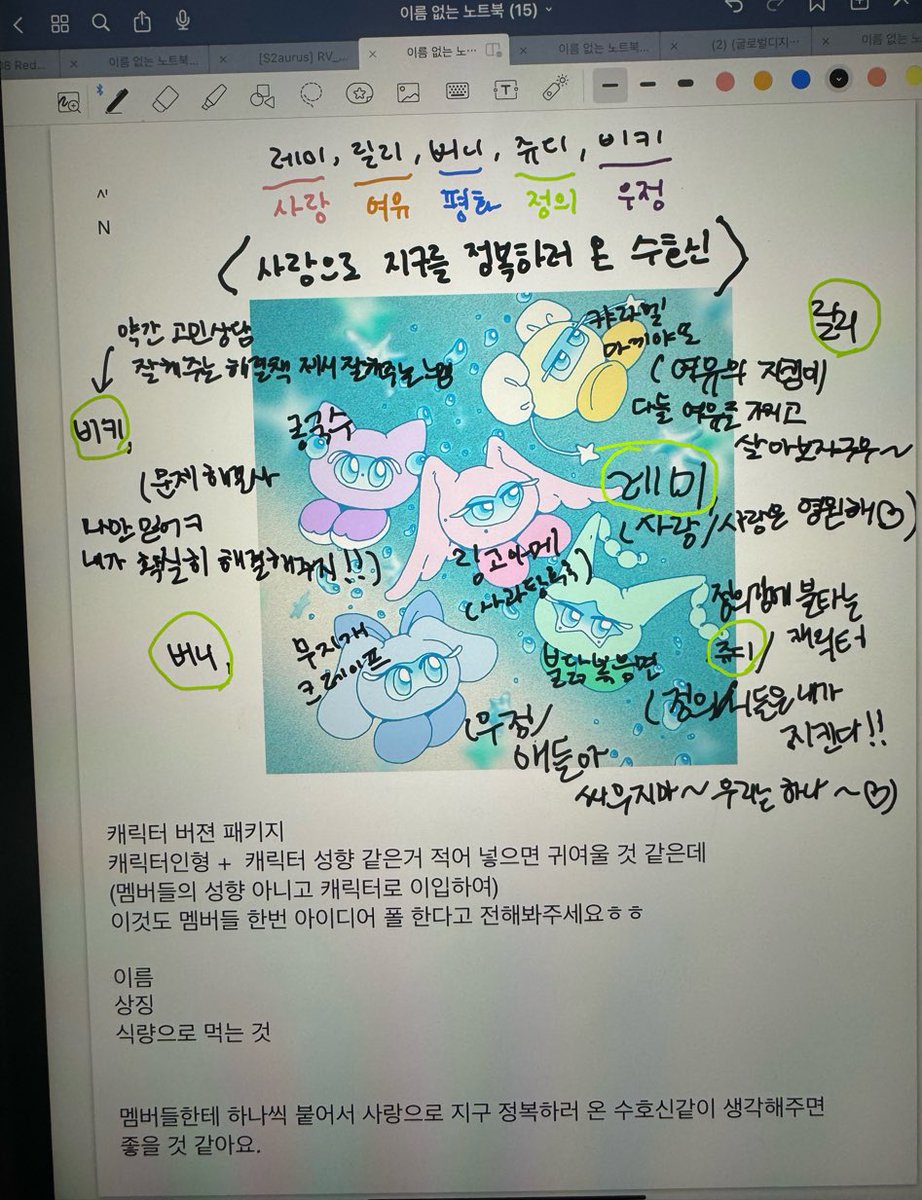 이름 없는 노트북 (15)
08 Red...
이름 없는 노트북...
[S2aurus] RV_...
이름 없는 노...
이름 없는 노트북...
(2) (글로벌디지...
이름 없는 노트
레미, 릴리, 버니, 쥬디, 비키
사랑 여유 평화 정의 우정
시
N
(사랑으로 지구를 정복하러 온 수호신)
약간 고민상담
잘해주는 해결책 제시 잘해주는 느낌
비키,
(문제 해결사
나만 믿어ㅋ
내가 확실히 해결해주지!!)
콩국수
캬라멜
마끼야또
릴리
(여유의 지배이
다들 여유를 가지고
살아보자구우~
레미
(사랑/사랑은 영원해♡)
랑고아메
(사과탕후루)
정의감에 불타는
쥬디/ 캐릭터
(정의/너들은 내가
지킨다!!
불닭볶음면
버니,
무지개
크레이프
(우정/
얘들아
싸우지마~ 우리는 하나~♡)
캐릭터 버젼 패키지
캐릭터인형 + 캐릭터 성향 같은거 적어 넣으면 귀여울 것 같은데
(멤버들의 성향 아니고 캐릭터로 이입하여)
이것도 멤버들 한번 아이디어 폴 한다고 전해봐주세요ㅎㅎ
이름
상징
식량으로 먹는 것
멤버들한테 하나씩 붙어서 사랑으로 지구 정복하러 온 수호신같이 생각해주면
좋을 것 같아요.